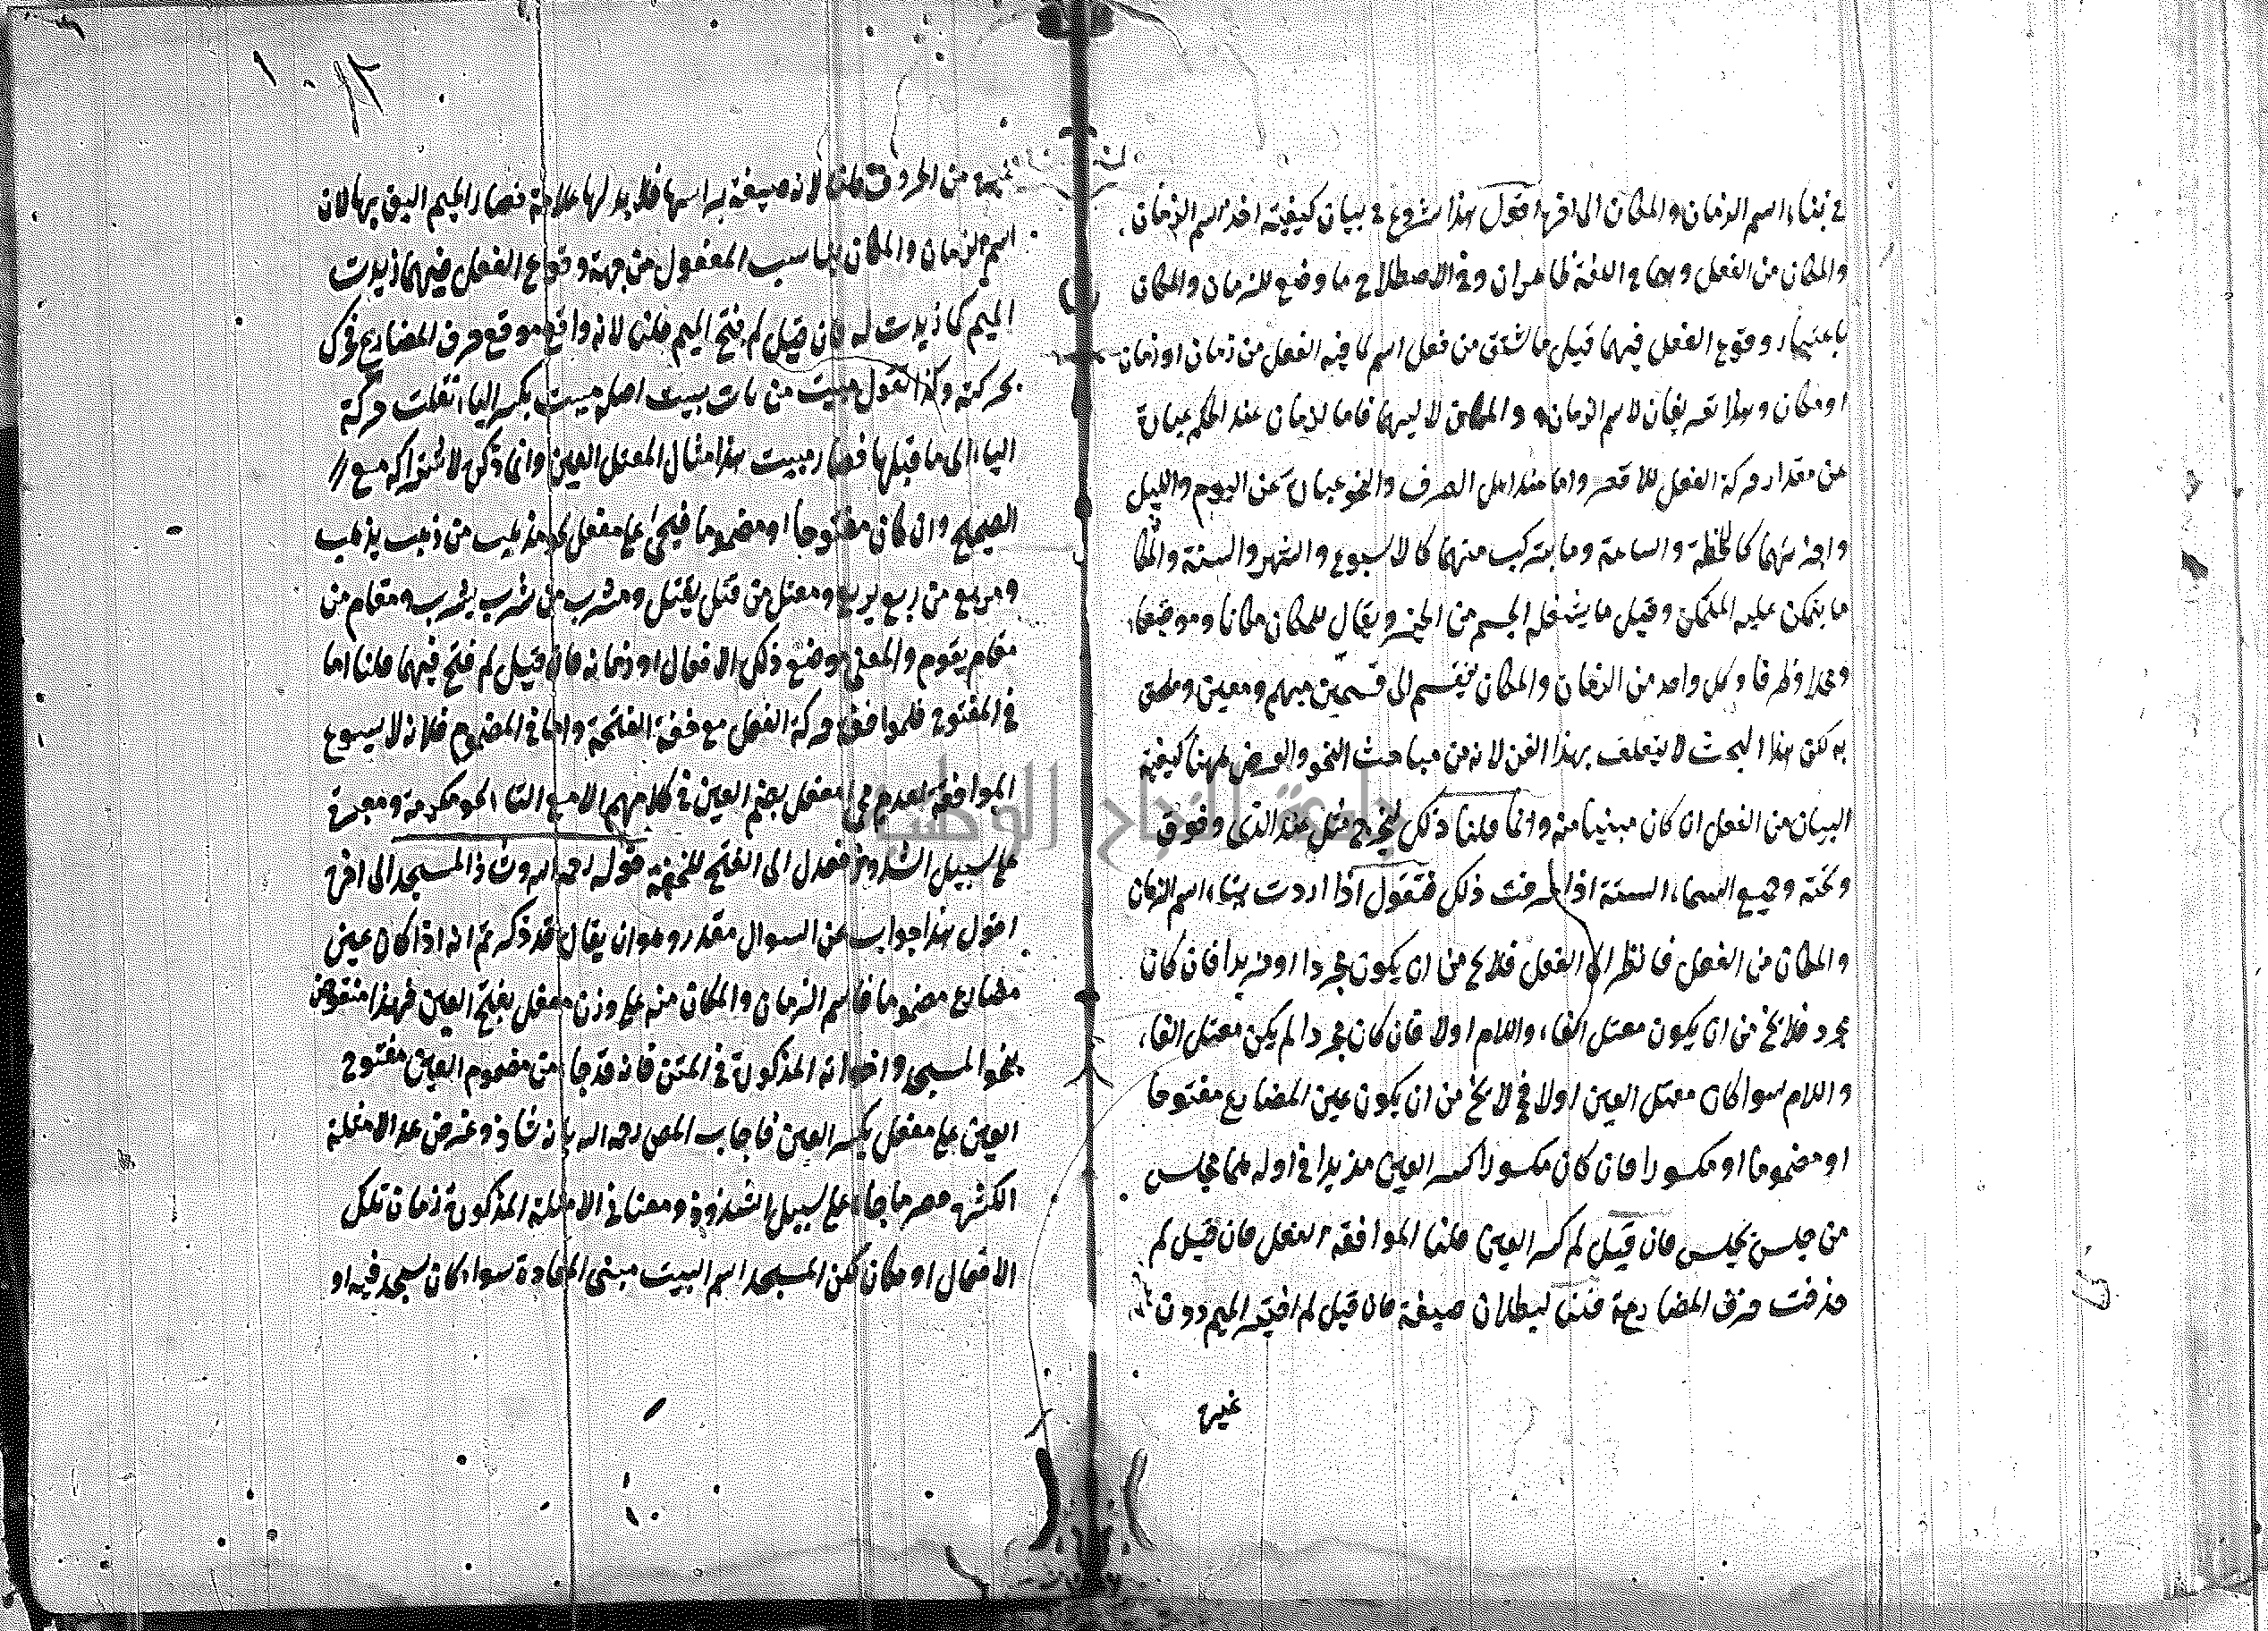 في بناء اسم الزمان والمكان الى اخرها اقول هذا شروع في بيان كيفية اخذ اسم الزمان
والمكان من الفعل وهما في اللغة ظاهران وفي الاصطلاح ما وضع للزمان والمكان
باعتبار وقوع الفعل فيهما قيل ما اشتق من فعل اسم لما فيه الفعل من زمان او زمان
او مكان وهذا تعريفان لاسم الزمان والمكان لا ليهما فاما الزمان عند الحكم عبارة
عن مقدار حركة الفعل للاقصر واما عند اهل الصرف والنحو عبارة عن اليوم والليل
واجزئهما كاللحظة والساعة وما يتركب منهما كالاسبوع والشهر والسنة والمكا
ما يتمكن عليه المتمكن وقيل ما يشغله الجسم من الحيز ويقال للمكان مكانا وموضعا
ومحلا وظرفا وكل واحد من الزمان والمكان ينقسم الى قسمين مبهم ومعين وملحق
به لكن هذا البحث لا يتعلق بهذا الفن لانه من مباحث النحو والغرض ههنا كيفية
البيان من الفعل ان كان مبنيا منه وانما قلنا ذلك ليخرج مثل عند الذي وفوق
وتحته وجميع السماء الستة اذا عرفت ذلك فتقول اذا اردت بناء اسم الزمان
والمكان من الفعل فانظر الى الفعل فلا يخ من ان يكون مجردا او مزيدا فان كان
مجرد فلا يخ من ان يكون معتل الفاء واللام اولا فان كان مجردا لم يكن معتل الفاء
واللام سوا كان معتل العين اولا فح لا يخ من ان يكون عين المضارع مفتوحا
او مضموما او مكسورا فان كان مكسورا كسر العين مزيدا في اوله ميما مجلس
من جلس يجلس فان قيل لم كسر العين قلنا الموافقة الفعل فان قيل لم
حذفت حرف المضارعة قلنا لبطلان صيغة فان قيل لم اختير الميم دون
غيره
غيره من الحروف قلنا لانه صيغة براسها فلا بد لها علامة فصار الميم اليق بها لان
اسم الزمان والمكان يناسب المفعول من جهة وقوع الفعل فيهما زيدت
الميم كما زيدت له فان قيل لم فتح الميم قلنا لانه واقع موقع حرف المضارع فحرك
بحركته وكذا تقول مبيت من بات يبيت اصله مبيت بكسر الياء نقلت حركة
الياء الى ما قبلها فصار مبيت هذا مثال المعتل العين وانما ذكره لاشتراكه مع
الصحيح وان كان مفتوحا او مضموما فيجئ على مفعل نحو مذهب من ذهب يذهب
ومربع من ربع يربع ومقتل من قتل يقتل ومشرب من شرب يشرب ومقام من
مقام يقوم والمعنى موضع ذلك الافعال او زمانه فان قيل لم فتح فيهما قلنا اما
في المفتوح فلموافقة حركة الفعل مع خفة الفتحة واما في المضموم فلانه لا يسوغ
الموافقة لعدم مجئ مفعل بضم العين في كلامهم الا مع التاء نحو مكرمة ومعبرة
على سبيل الشذوذ فعدل الى الفتح للخفة قوله رحمه الله وشذ المسجد الى اخره
اقول هذا جواب عن السوال مقدر وهو ان يقال قد ذكر ثم انه اذا كان عين
مضارع مضموما فاسم الزمان والمكان منه على وزن مفعل بفتح العين فهذا منقوض
بنحو المسجد واخواته المذكورة في المتن فانه قد جاء من مضموم العين مفتوح
العين على مفعل بكسر العين فاجاب المص رحمه الله بانه شاذ وغرض عد الامثلة
الكثير حصر ما جاء على سبيل الشذوذ ومعنا في الامثلة المذكورة زمان تلك
الافعال او مكان لكن المسجد اسم البيت مبنى العبادة سواء كان يسجد فيه او
جامعة النجاح الوطنية